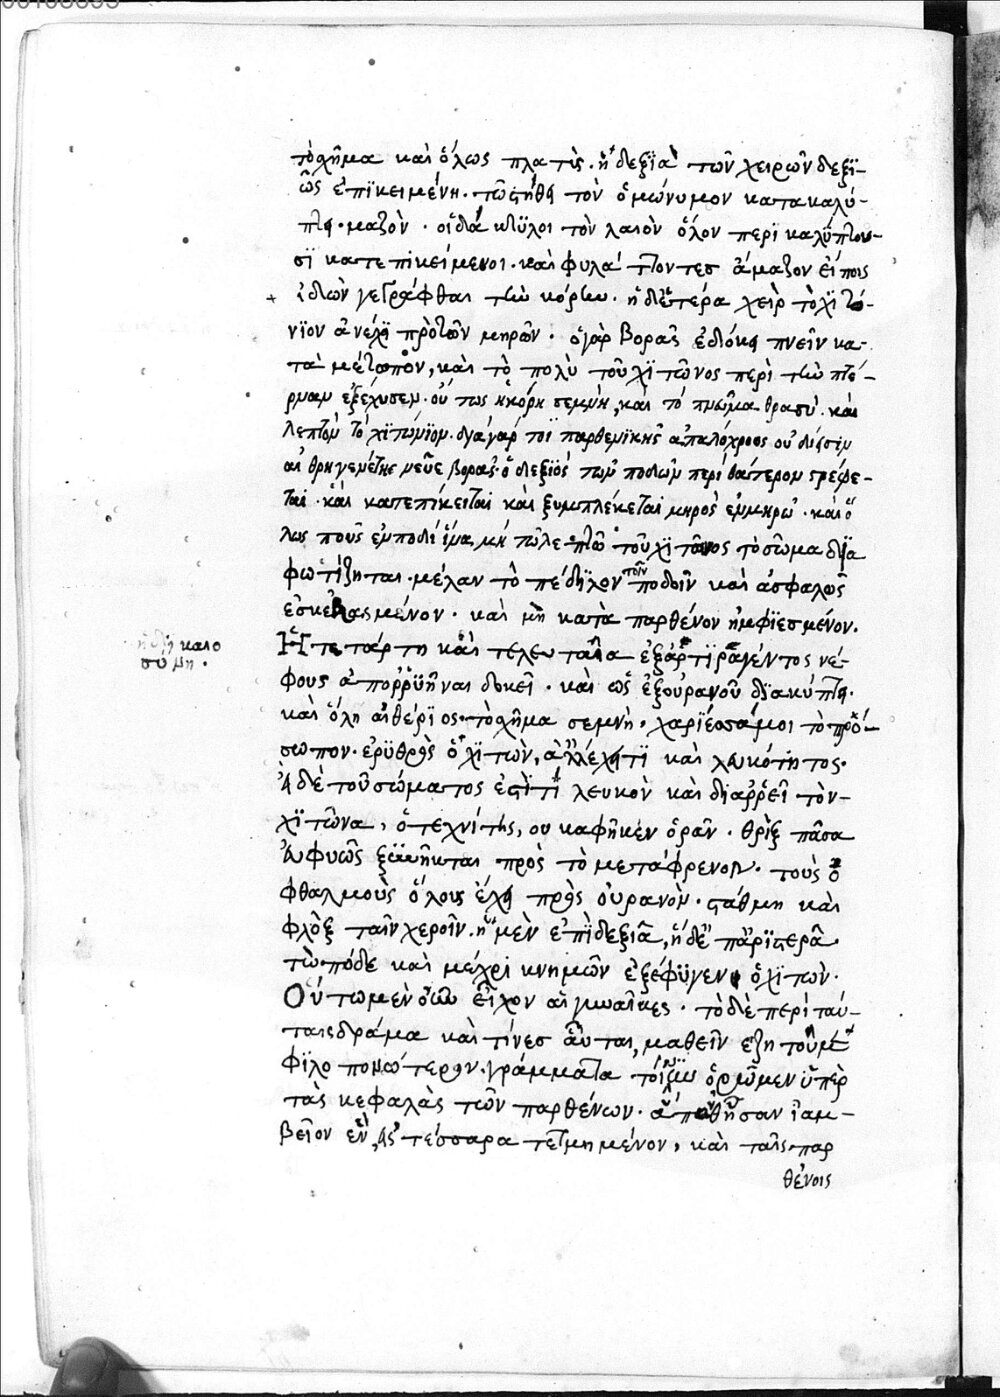 τὸ σχῆμα καὶ ὅλως πλατύς. ἡ δεξιὰ τῶν χειρῶν δεξϊ-
ῶς ἐπικειμένη. τῶ στήθει τὸν ὁμώνυμον κατακαλύ-
πτει μαζὸν. οἱ δάκτυλοι τὸν λαιὸν ὅλον περικαλύπτου-
σϊ κατεπικείμενοι. καὶ φυλάττοντες ἄμαζον εἴποις
ἰδὼν γεγράφθαι τὴν κόρην. ἡ δευτέρα χεὶρ τὸ χιτώ-
νϊον ἀνέχει πρὸ τῶν μηρῶν. ὁ γὰρ βορᾶς ἐδόκει πνεῖν κα-
τὰ μέτωπον, καὶ τὸ πολὺ τοῦ χιτῶνος περὶ τὴν πτέ-
ρναν ἐξέχυσεν. οὕτως ἡ κόρη σεμνή, καὶ τὸ πνεῦμα θρασύ. καὶ
λεπτὸν τὸ χιτώνιον. διὰ γάρ τοι παρθενικῆς ἁπαλόχροος οὐ διάησιν
αἰθρηγενέτης βορας. ὁ δεξιὸς τῶν ποδῶν περὶ θάτερον στρέφε-
ται. καὶ κατεπίκειται καὶ ξυμπλέκεται μηρὸς ἐμμηρῶ. καὶ ὅ-
λως ποὺς ἐμποδί ἵνα μὴ τῶ λεπτῶ τοῦ χιτῶνος τὸ σῶμα δϊα
φωτίζηται. μέλαν τὸ πέδιλον τοῖν ποδοῖν καὶ ἀσφαλῶς
ἐσκευασμένον. καὶ μὴ κατὰ παρθένον ἠμφϊεσμένον.
ἡ δικαιο
συνη.
Ἡ τετάρτη καὶ τελευταία ἐξ ἄρτι ῥαγέντος νέ-
φους ἀπορρϋῆναι δοκεῖ. καὶ ὡς ἐξ οὐρανοῦ δϊακύπτει.
καὶ ὅλη αἰθέριος. τὸ σχῆμα σεμνὴ. χαρϊέσσά μοι τὸ πρό-
σωπον. ἐρϋθρὸς ὁ χιτὼν, ἀλλ' ἔχει τϊ καὶ λευκότητος.
εἰ δὲ τοῦ σώματος ἐστὶ τὶ λευκὸν καὶ διαρρεῖ τὸν
χϊτῶνα, ὁ τεχνίτης, οὐκ ἀφῆκεν ὁρᾶν. θρὶξ πᾶσα
εὐφυῶς πρὸς τὸ μετάφρενον. τοὺς ὀ-
φθαλμοὺς ὅλους ἔχει πρὸς οὐρανὸν. στάθμη καὶ
φλὸξ ταῖν χεροῖν. ἡ μὲν ἐπὶ δεξιᾶ, ἡ δὲ παρϊστερᾶ.
τὼ πόδε καὶ μέχρι κνημῶν ἐξέφϋγεν ὁ χιτὼν.
Οὕτω μὲν οὖν εἶχον αἱ γυναῖκες. τὸ δὲ περὶ ταύ-
ταις δράμα καὶ τίνες αὗται, μαθεῖν ἐζητοῦμεν
φϊλοπονώτερον. γράμματα τοίνϋν ὁρῶμεν ὑπὲρ
τὰς κεφαλὰς τῶν παρθένων. ἃ ποϊῆσαν ἰαμ-
βεῖον ἓν, εἰς τέσσαρα τετμημένον, καὶ ταῖς παρ
θένοις